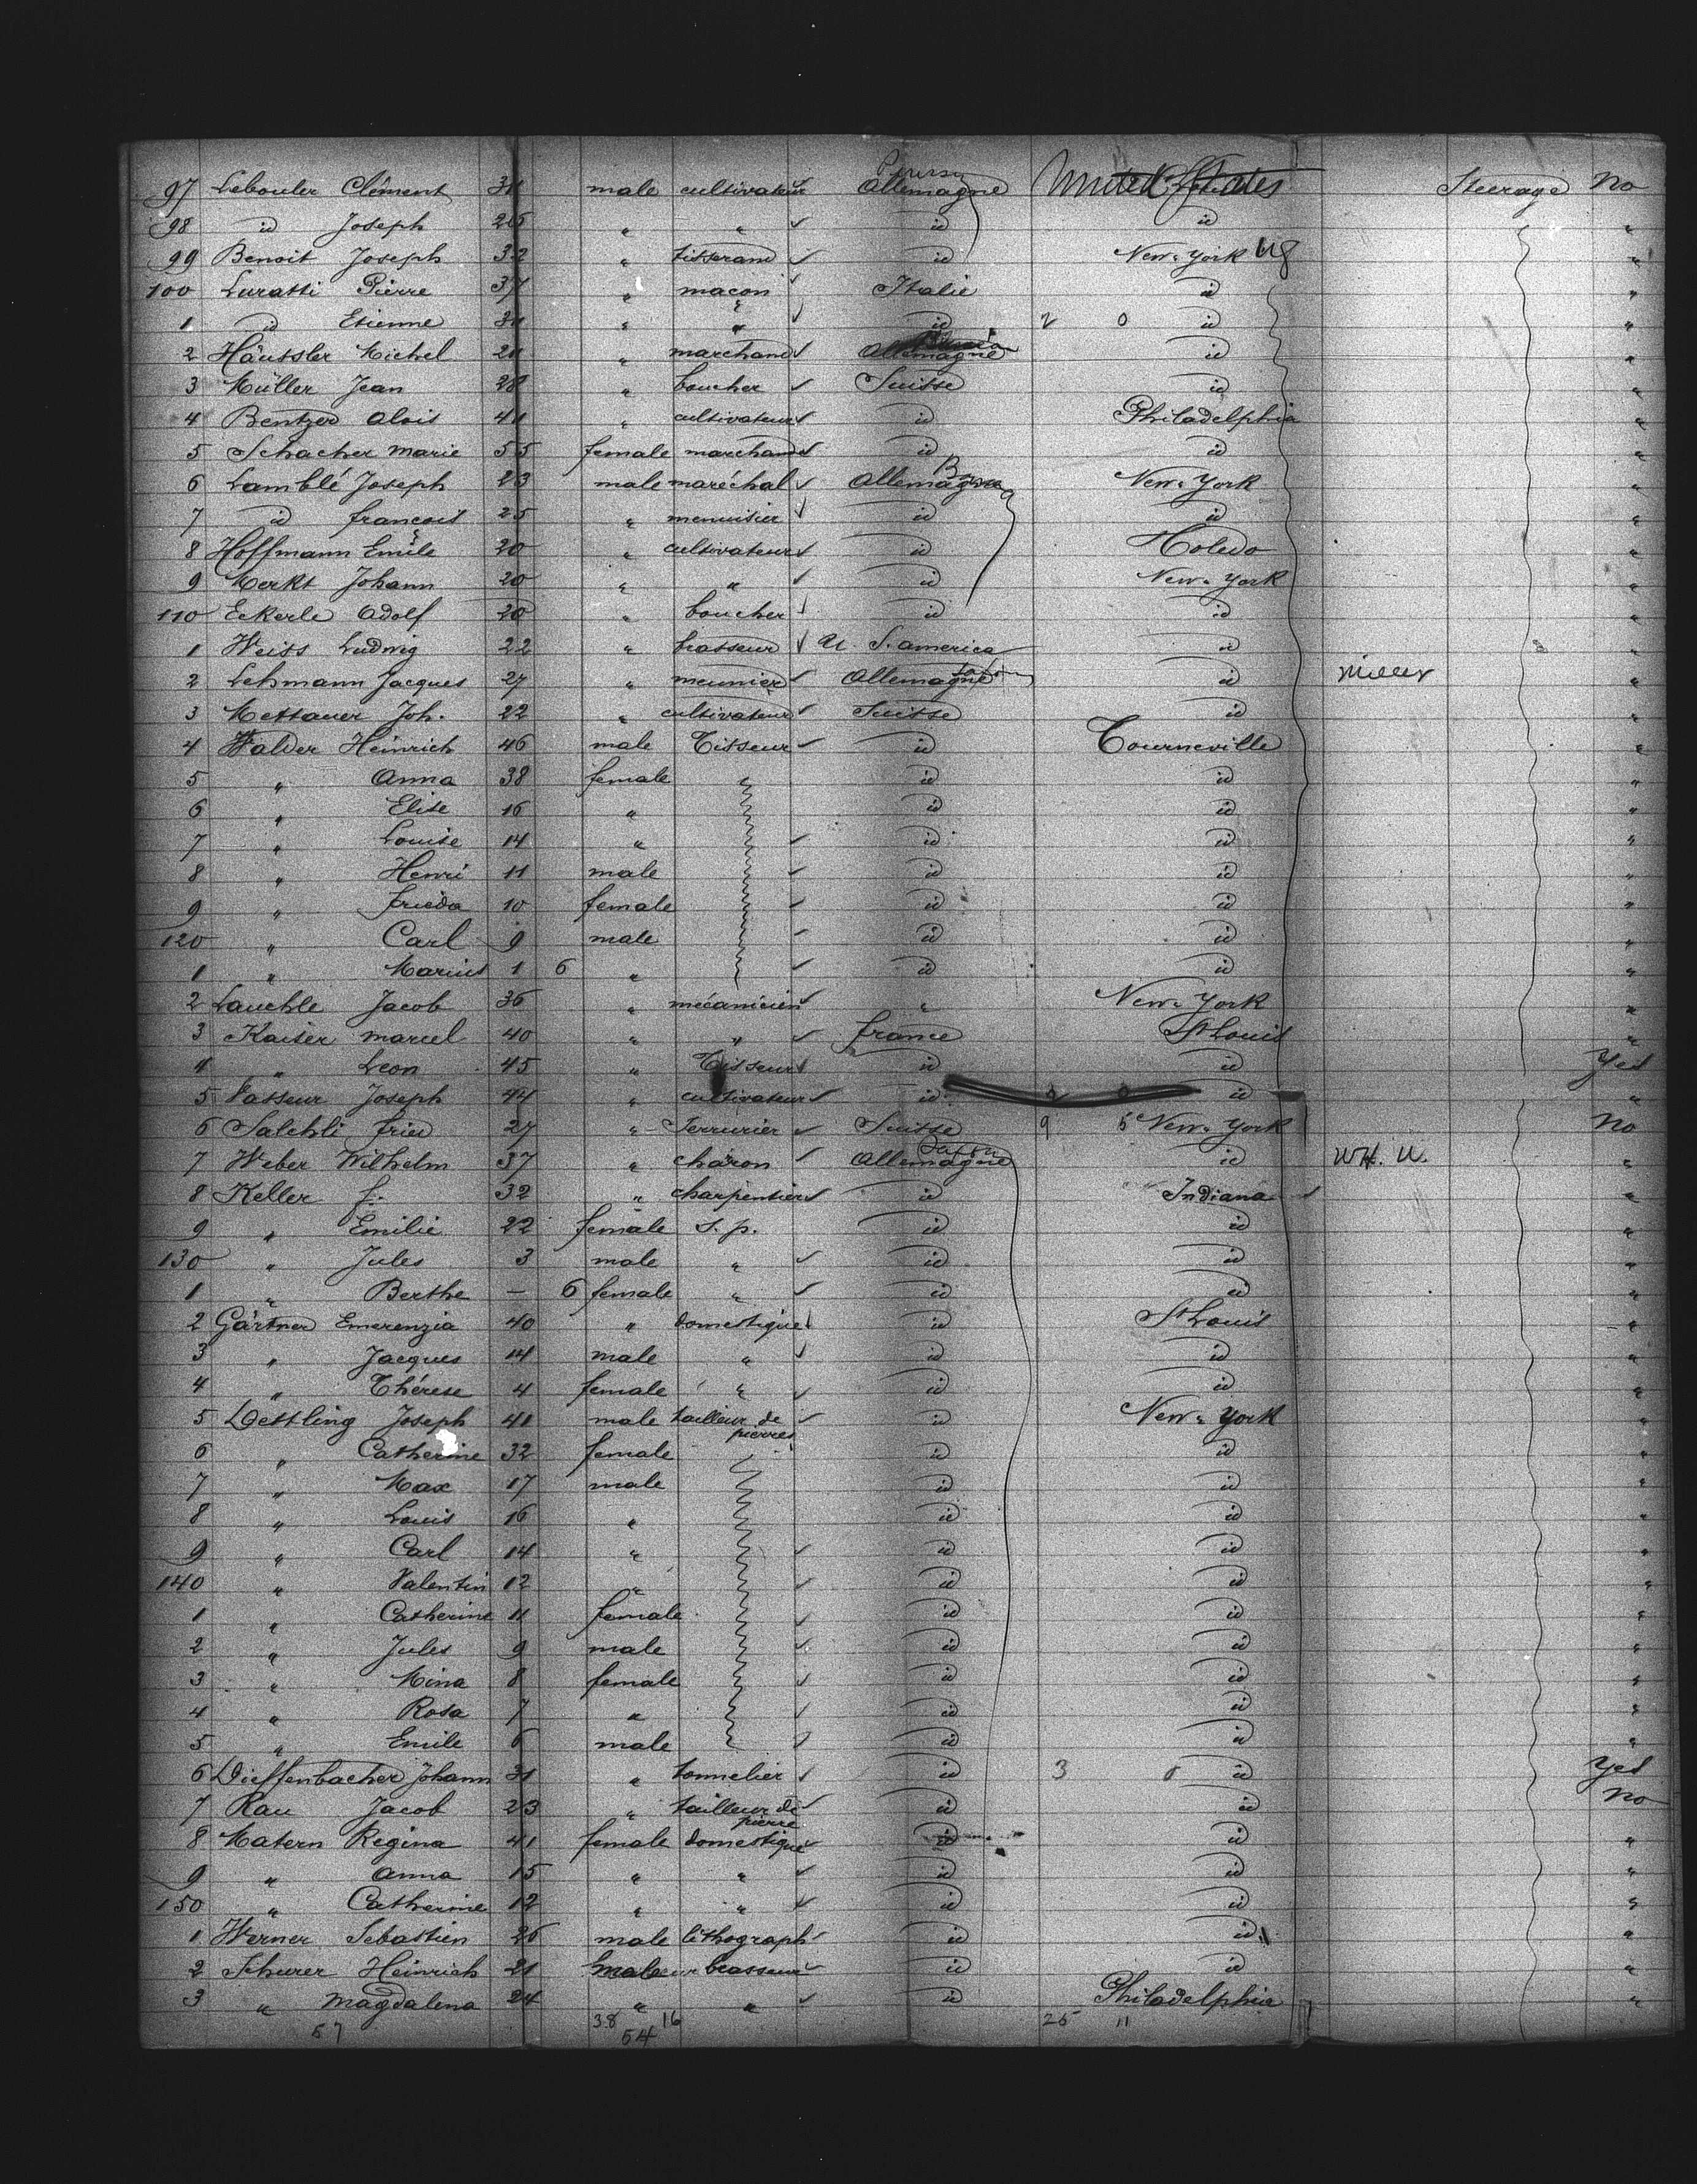 97 Lebouler Clément 31 male cultivateur Allemagne United States Steerage No
98 id Joseph 26 " " id id "
99 Benoit Joseph 32 " tisserand id New-York "
100 Luratti Pierre 37 " maçon Italie id "
1 id Etienne 31 " " id 2 0 id "
2 Häussler Michel 21 " marchand Allemagne id "
3 Müller Jean 28 " boucher Suisse id "
4 Bentzer Alois 41 " cultivateur id Philadelphia "
5 Schacher Marie 55 female marchand id id "
6 Lamblé Joseph 23 male maréchal Allemagne New-York "
7 id françois 25 " menuisier id id "
8 Hoffmann Emile 20 " cultivateur id Toledo "
9 Merkt Johann 20 " " id New-York "
110 Eckerle Adolf 20 " boucher id id "
1 Weiss Ludwig 22 " brasseur U. S. america id "
2 Lehmann Jacques 27 " meunier Allemagne id Miller "
3 Mettauer Joh. 22 " cultivateur Suisse id "
4 Walder Heinrich 46 male Tisseur id Tourneville "
5 " Anna 38 female " id id "
6 " Elise 16 " id id "
7 " Louise 14 " id id "
8 " Henri 11 male id id "
9 " frieda 10 female id id "
120 " Carl 9 male id id "
1 " Marius 1 6 " id id "
2 Lauchle Jacob 36 " mécanicien " New-York "
3 Kaiser marcel 40 " " france St Louis "
4 " Leon 45 " Tisseur id id Yes
5 Vasseur Joseph 44 " cultivateur id id "
6 Salchli fried 27 " Serrurier Suisse 9 5 New-York No
7 Weber Wilhelm 37 " charon Allemagne id WH. U. "
8 Keller f. 32 " charpentier id Indiana "
9 " Emilie 22 female s. p. id id "
130 " Jules 3 male " id id "
1 " Berthe — 6 female " id id "
2 Gärtner Emerenzia 40 " domestique id St Louis "
3 " Jacques 14 male " id id "
4 " Thérese 4 female " id id "
5 Oettling Joseph 41 male tailleur de pierres id New-York "
6 " Catherine 32 female id id "
7 " Max 17 male id id "
8 " Louis 16 " id id "
9 " Carl 14 " id id "
140 " Valentin 12 " id id "
1 " Catherine 11 female id id "
2 " Jules 9 male id id "
3 " Mina 8 female id id "
4 " Rosa 7 " id id "
5 " Emile 6 male id id "
6 Dieffenbacher Johann 31 " tonnelier id 3 0 id Yes
7 Rau Jacob 23 " tailleur de pierre id id No
8 Matern Regina 41 female domestique id id "
9 " Anna 15 " " id id "
150 " Catherine 12 " " id id "
1 Werner Sebastien 26 male lithograph id id "
2 Schurer Heinrich 21 male brasseur id id "
3 " Magdalena 24 " " id Philadelphia "
57 38 16 25 11
54